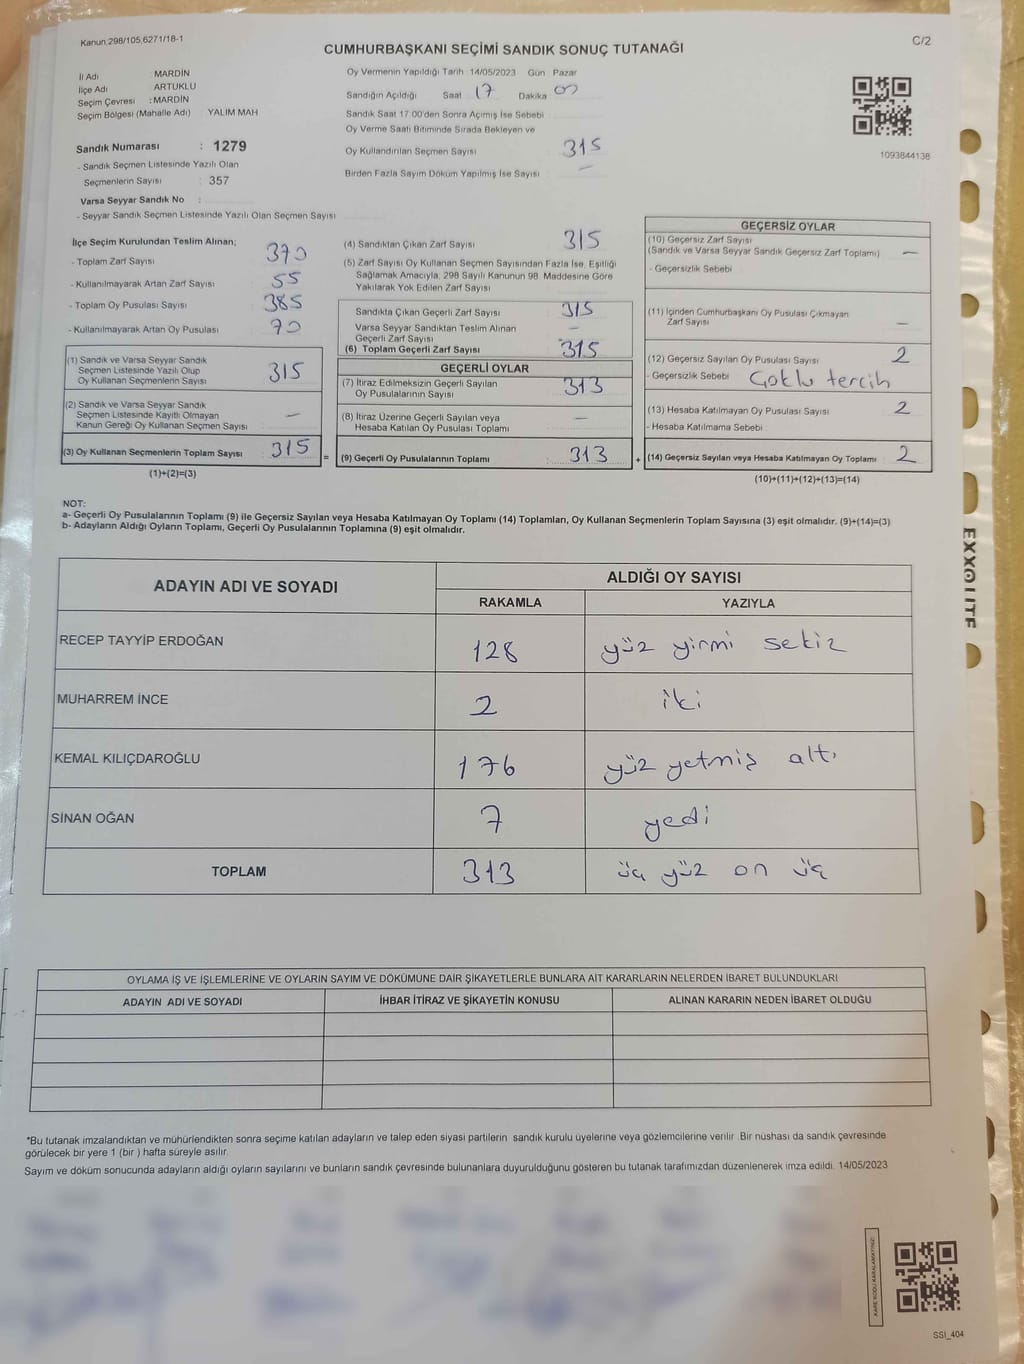 Kanun.298/105,6271/18-1
C/2
CUMHURBAŞKANI SEÇİMİ SANDIK SONUÇ TUTANAĞI
İl Adı : MARDİN
İlçe Adı : ARTUKLU
Seçim Çevresi : MARDİN
Seçim Bölgesi (Mahalle Adı) YALIM MAH
Sandık Numarası : 1279
- Sandık Seçmen Listesinde Yazılı Olan
Seçmenlerin Sayısı : 357
Varsa Seyyar Sandık No :
- Seyyar Sandık Seçmen Listesinde Yazılı Olan Seçmen Sayısı
Oy Vermenin Yapıldığı Tarih :14/05/2023 Gün : Pazar
Sandığın Açıldığı Saat : 17 Dakika : 00
Sandık Saat 17:00'den Sonra Açımış İse Sebebi :
Oy Verme Saati Bitiminde Sırada Bekleyen ve
Oy Kullandırılan Seçmen Sayısı : 315
Birden Fazla Sayım Döküm Yapılmış İse Sayısı : -
1093844138
İlçe Seçim Kurulundan Teslim Alınan;
- Toplam Zarf Sayısı : 370
- Kullanılmayarak Artan Zarf Sayısı : 55
- Toplam Oy Pusulası Sayısı : 385
- Kullanılmayarak Artan Oy Pusulası : 70
(1) Sandık ve Varsa Seyyar Sandık
Seçmen Listesinde Yazılı Olup
Oy Kullanan Seçmenlerin Sayısı : 315
(2) Sandık ve Varsa Seyyar Sandık
Seçmen Listesinde Kayıtlı Olmayan
Kanun Gereği Oy Kullanan Seçmen Sayısı : -
(3) Oy Kullanan Seçmenlerin Toplam Sayısı : 315
(1)+(2)=(3)
(4) Sandıktan Çıkan Zarf Sayısı : 315
(5) Zarf Sayısı Oy Kullanan Seçmen Sayısından Fazla İse, Eşitliği
Sağlamak Amacıyla, 298 Sayılı Kanunun 98. Maddesine Göre
Yakılarak Yok Edilen Zarf Sayısı :
Sandıkta Çıkan Geçerli Zarf Sayısı : 315
Varsa Seyyar Sandıktan Teslim Alınan
Geçerli Zarf Sayısı : -
(6) Toplam Geçerli Zarf Sayısı : 315
GEÇERLİ OYLAR
(7) İtiraz Edilmeksizin Geçerli Sayılan
Oy Pusulalarının Sayısı : 313
(8) İtiraz Üzerine Geçerli Sayılan veya
Hesaba Katılan Oy Pusulası Toplamı : -
(9) Geçerli Oy Pusulalarının Toplamı : 313
GEÇERSİZ OYLAR
(10) Geçersiz Zarf Sayısı
(Sandık ve Varsa Seyyar Sandık Geçersiz Zarf Toplamı) : -
- Geçersizlik Sebebi
(11) İçinden Cumhurbaşkanı Oy Pusulası Çıkmayan
Zarf Sayısı : -
(12) Geçersiz Sayılan Oy Pusulası Sayısı : 2
- Geçersizlik Sebebi : Çoklu tercih
(13) Hesaba Katılmayan Oy Pusulası Sayısı : 2
- Hesaba Katılmama Sebebi :
(14) Geçersiz Sayılan veya Hesaba Katılmayan Oy Toplamı : 2
(10)+(11)+(12)+(13)=(14)
NOT:
a- Geçerli Oy Pusulalarının Toplamı (9) ile Geçersiz Sayılan veya Hesaba Katılmayan Oy Toplamı (14) Toplamları, Oy Kullanan Seçmenlerin Toplam Sayısına (3) eşit olmalıdır. (9)+(14)=(3)
b- Adayların Aldığı Oyların Toplamı, Geçerli Oy Pusulalarının Toplamına (9) eşit olmalıdır.
ADAYIN ADI VE SOYADI
ALDIĞI OY SAYISI
RAKAMLA YAZIYLA
RECEP TAYYİP ERDOĞAN 128 yüz yirmi sekiz
MUHARREM İNCE 2 iki
KEMAL KILIÇDAROĞLU 176 yüz yetmiş altı
SİNAN OĞAN 7 yedi
TOPLAM 313 üç yüz on üç
OYLAMA İŞ VE İŞLEMLERİNE VE OYLARIN SAYIM VE DÖKÜMÜNE DAİR ŞİKAYETLERLE BUNLARA AİT KARARLARIN NELERDEN İBARET BULUNDUKLARI
ADAYIN ADI VE SOYADI İHBAR İTİRAZ VE ŞİKAYETİN KONUSU ALINAN KARARIN NEDEN İBARET OLDUĞU
*Bu tutanak imzalandıktan ve mühürlendikten sonra seçime katılan adayların ve talep eden siyasi partilerin sandık kurulu üyelerine veya gözlemcilerine verilir. Bir nüshası da sandık çevresinde
görülecek bir yere 1 (bir ) hafta süreyle asılır.
Sayım ve döküm sonucunda adayların aldığı oyların sayılarını ve bunların sandık çevresinde bulunanlara duyurulduğunu gösteren bu tutanak tarafımızdan düzenlenerek imza edildi. 14/05/2023
KARE KODU KARALAMAYINIZ!
SSI_404
EXXOLITE